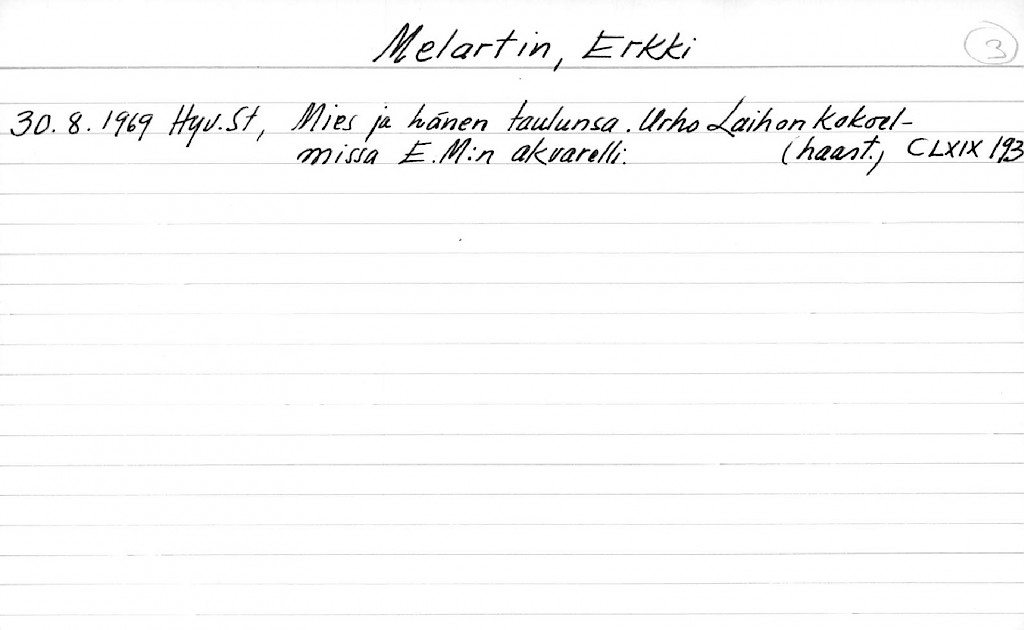 Melartin, Erkki
3
30.8.1969 Hyv.St, Mies ja hänen taulunsa. Urho Laihon kokoel-
missa E.M:n akvarelli. (haast.) CLXIX 193